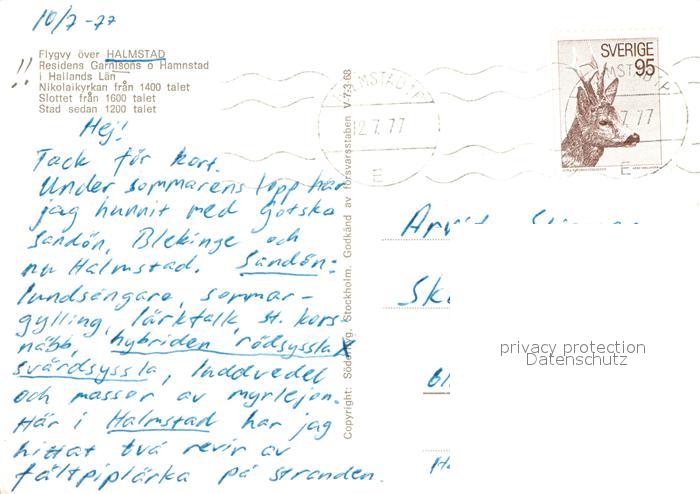 10/7 -77
Flygvy över HALMSTAD
!! Residens Garnisons o Hamnstad
i Hallands Län
Nikolaikyrkan från 1400 talet
Slottet från 1600 talet
Stad sedan 1200 talet
Hej!
Tack för kort.
Under sommarens lopp har
jag hunnit med Gotska
Sandön, Blekinge och
nu Halmstad. Sandön:
lundsångare, sommar-
gylling, lärkfalk, st. kors
näbb, hybriden rödsyssla X
svärdsyssla, luddvedel
och massor av myrlejon.
Här i Halmstad har jag
hittat två revir av
fältpiplärka på stranden.
Copyright: Stockholm. Godkänd av försvarsstaben V-7-3-68
HALMSTAD 1
12.7.77
E
SVERIGE
95
7.77
E
privacy protection
Datenschutz